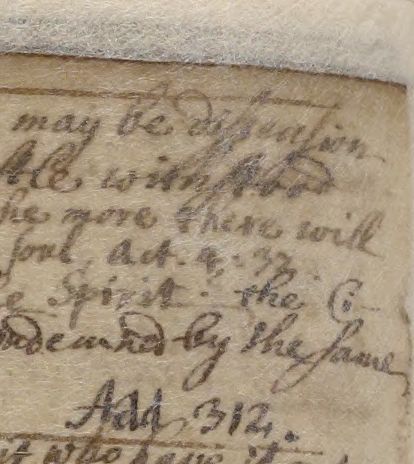 may be dissention
ble with
he more there will
soul, Act. 4. 32
e Spirit: the C
ondemned by the same
Add 312.
ut who have it